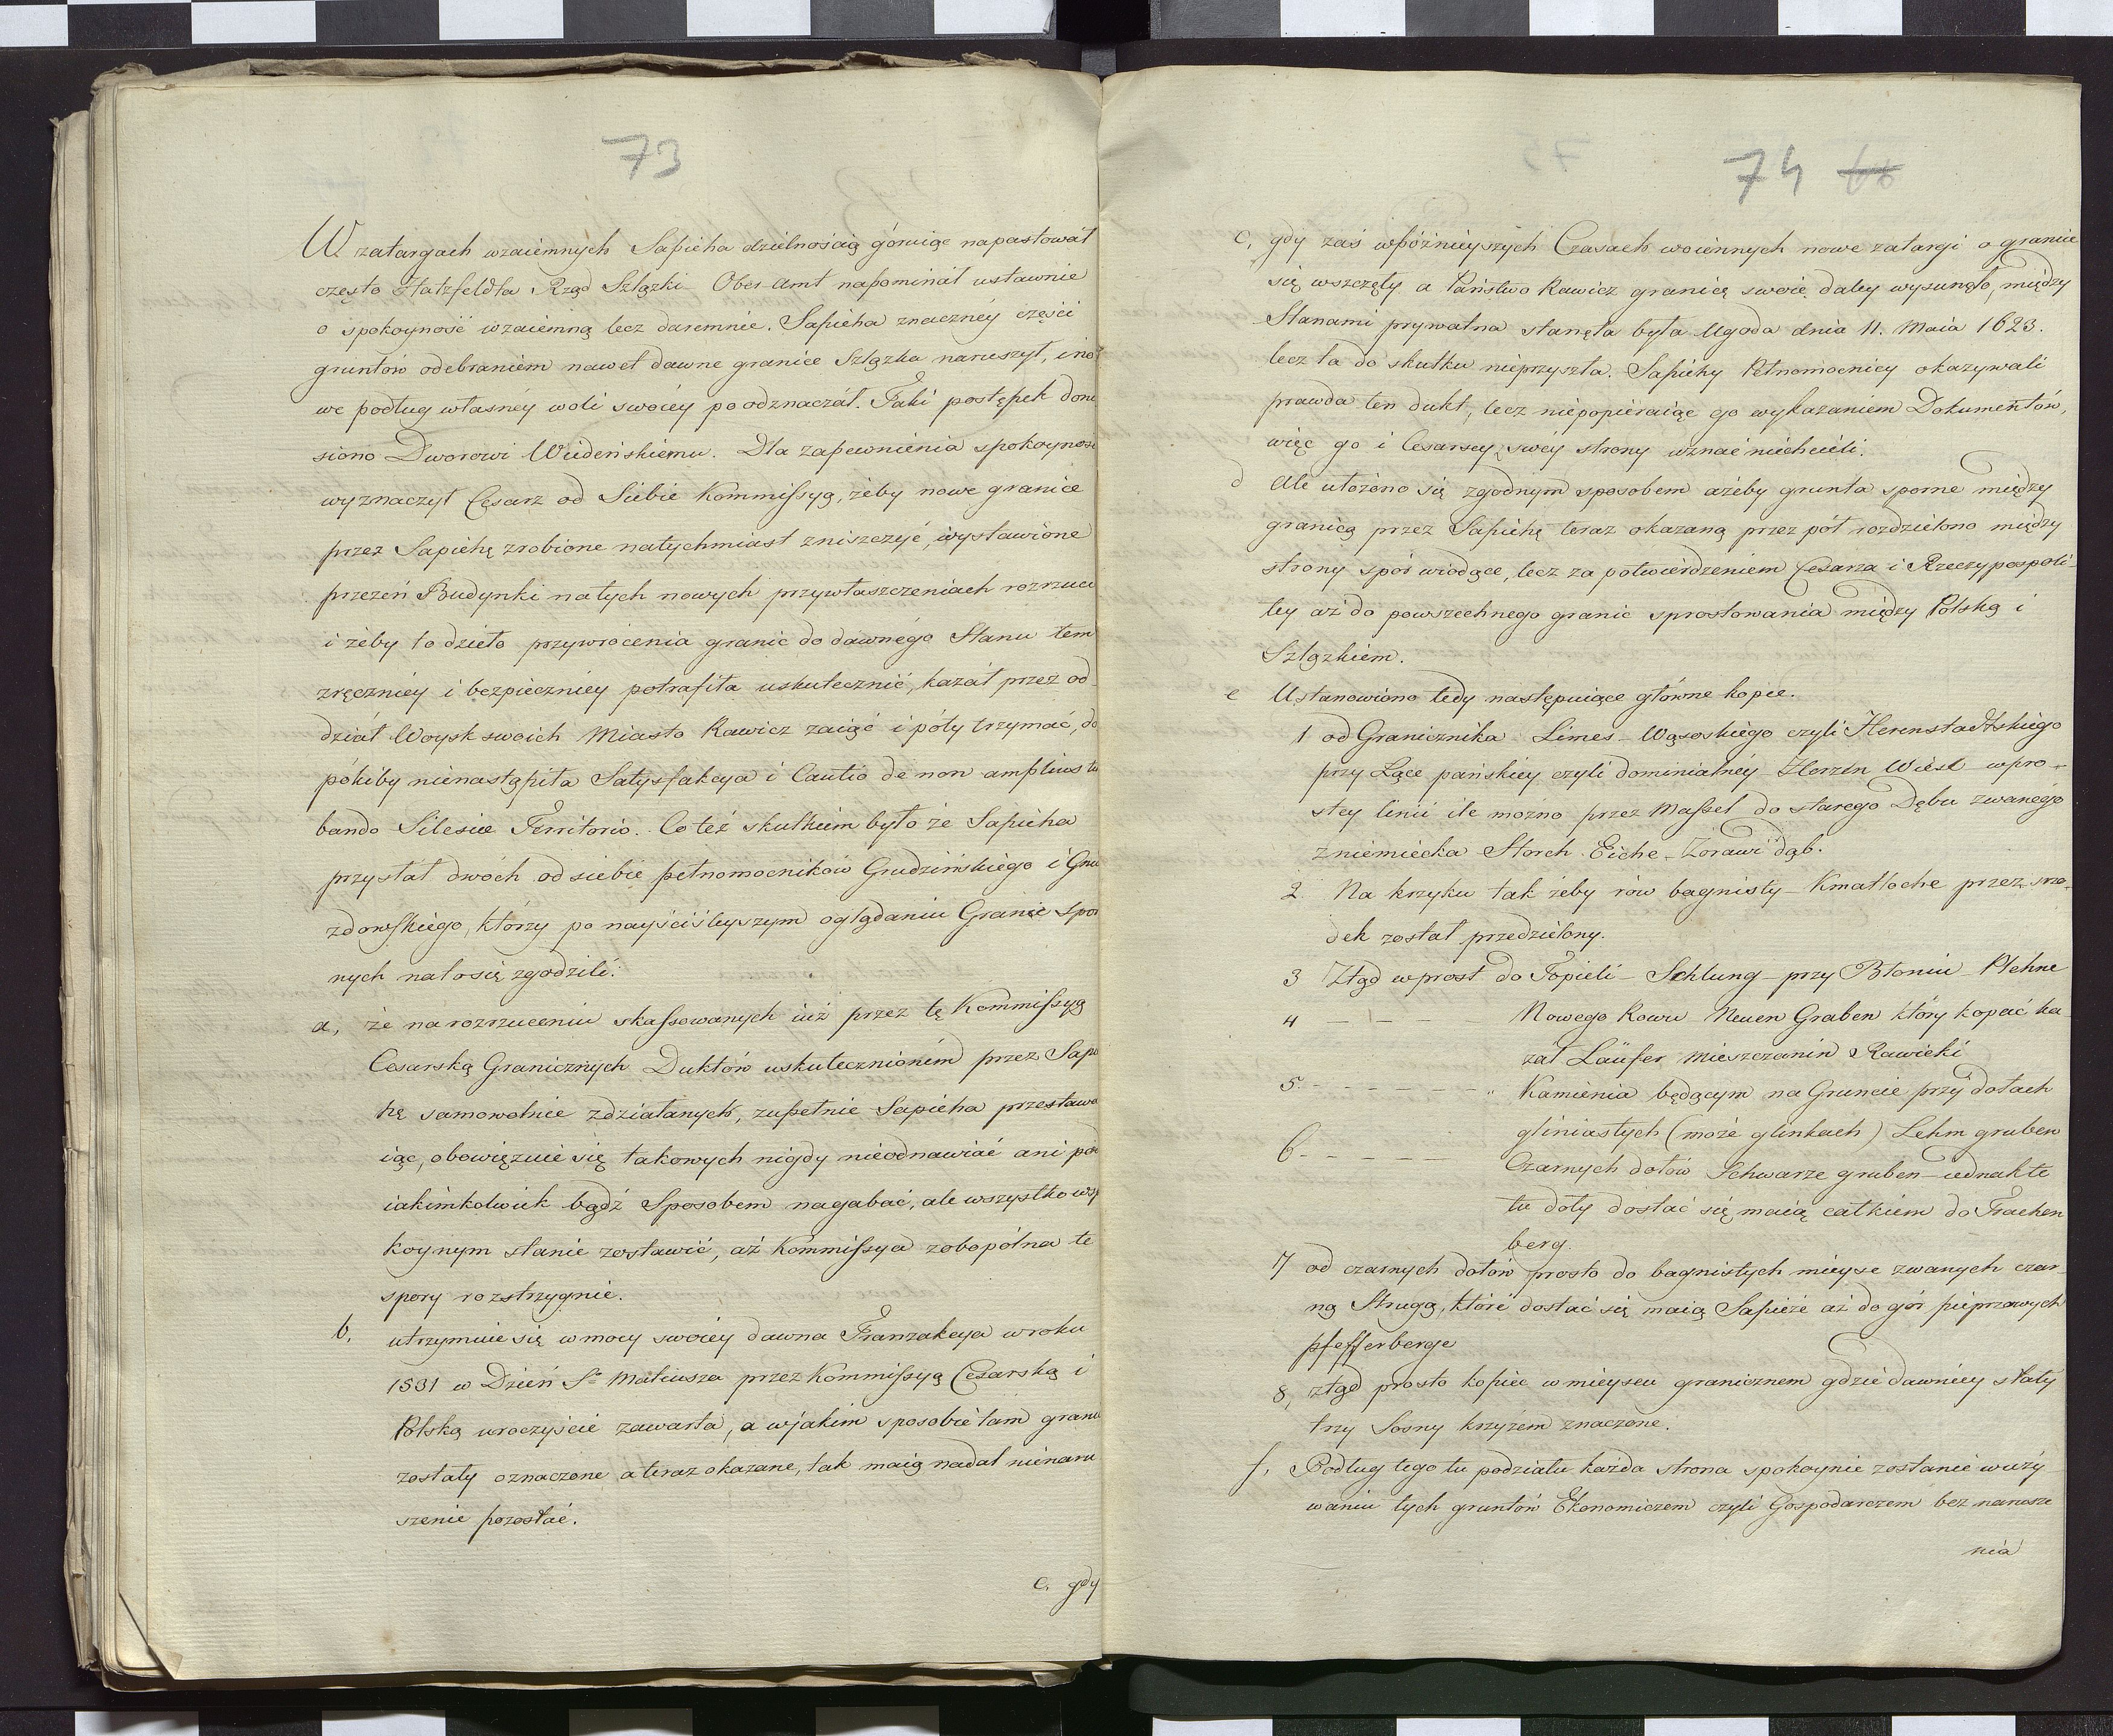 73
W zatargach wzaiemnych Sapieha dzielnością góruiąc napastował
często Hatzfeldta Rząd Szlązki Ober-amt napominał ustawnie
o spokoyność wzaiemną lecz daremnie. Sapieha znacznéy części
gruntów odebraniem nawet dawne granice Szlązka naruszył, i no
we podług własnéy woli swoiéy poodznaczał. Taki postępek donie
siono Dworowi Wiedeńskiemu. Dla zapewnienia spokoynosi
wyznaczył Cesarz od Siebie Kommissyą, żeby nowe granice
przez Sapiehę zrobione natychmiast zniszczyć, wystawione
przezeń Budynki na tych nowych przywłaszczeniach rozrzuci
i żeby to dzieło przywrócenia granic do dawnégo Stanu tem
zręczniéy i bezpieczniéy potrafiła uskutecznić, kazał przez od
dział Woysk swoich Miasto Rawicz zaiąć i póty trzymać, do
pókiby nienastąpiła Satysfakcya i Cautio de non amplius tur
bando Silesiae Territorio. Co też skutkiem było że Sapieha
przysłał dwóch od siebie pełnomocników Grudzińskiego i Gnie
zdowskiego, którzy po nayściśleyszym oglądaniu Granic spor
nych na to się zgodzili:
a, że na rozrzuceniu skassowanych iuż przez tę Kommissyą
Cesarską Granicznych Duktów uskutecznioném przez Sapie
hę samowolnie zdziałanych, zupełnie Sapieha przestawa
iąc, obowięzuie się takowych nigdy nieodnawiać ani pod
iakimkolwiek bądź Sposobem nagabać, ale wszystko w sp
koynym stanie zostawić, aż Kommissya zobopólna te
spory rozstrzygnie.
b, utrzymuie się w mocy swoiéy dawna Tranzakcya w roku
1531 w Dzień Sgo Mateusza przez Kommissyą Cesarską i
Polską uroczyście zawarta, a w jakim sposobie tam grani
zostały oznaczone a teraz okazane, tak maią nadal nienaru
szenie pozostać.
c, gdy
74
c, gdy zaś wpóźnieyszych Czasach woiennych nowe zatargi o granice
się wszczęły a Państwo Rawicz granicę swoię daley wysunęło, między
Stanami prywatna stanęła była Ugoda dnia 11. Maia 1623.
lecz ta do skutku nieprzyszła. Sapiehy Pełnomocnicy okazywali
prawda ten dukt, lecz niepopieraiąc go wykazaniem Dokumentów,
więc go i Cesarscy z swéy strony uznać niechcieli.
d Ale ułożono się zgodnym sposobem ażeby grunta sporne między
granicą przez Sapiehę teraz okazaną przez pół rozdzielono między
strony spór wiodące, lecz za potwierdzeniem Cesarza i Rzeczypospoli-
tey aż do powszechnego granic sprostowania między Polską i
Szlązkiem.
e Ustanowiono tedy następuiące główne kopce.
1 od Granicznika Limes Wąsoskiego czyli Herenstadtskiego
przy Łące pańskiey czyli dominialnéy Herren Wiese wpro-
stey linii ile można przez Massel do starego Dębu zwanégo
z niemiecka Storch Eiche - Zorawi dąb.
2 Na krzyku tak żeby rów bagnisty Kmatloche przez śrzo-
dek został przedzielony.
3 Ztąd wprost do Topieli - Schlung - przy Błoniu - Plehne
4 - - - - Nowego Rowu Neuen Graben który kopać ka
zał Laüfer Mieszczanin Rawicki
5. - - - - - - " Kamienia będącym na Gruncie przy dołach
gliniastych (może glinkach) Lehm gruben
6. - - - - - Czarnych dołów Schwarze gruben - iednak te
tu doły dostać się maią całkiem do Trachen
berg.
7 od czarnych dołów prosto do bagnistych mieysc zwanych czar-
ną Strugą, któré dostać się maią Sapieże aż do gór pieprzowych
pfefferberge
8, ztąd prosto kopiec w mieyscu granicznem gdzie dawniey stały
trzy Sosny krzyżem znaczone.
f, Podług tego tu podziału każda strona spokoynie zostanie wuży-
waniu tych gruntów Ekonomiczem czyli Gospodarczem bez narusze
nia